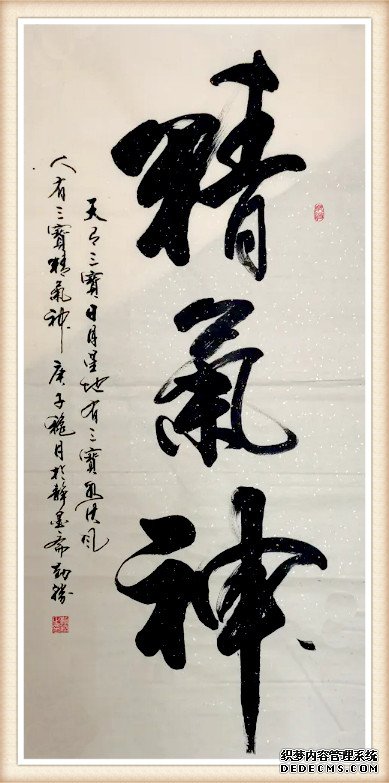 精氣神
天有三寶日月星地有三寶风
人有三寶精氣神 庚子穐月於静墨斋
织梦内容管理系统
DEDECMS.COM